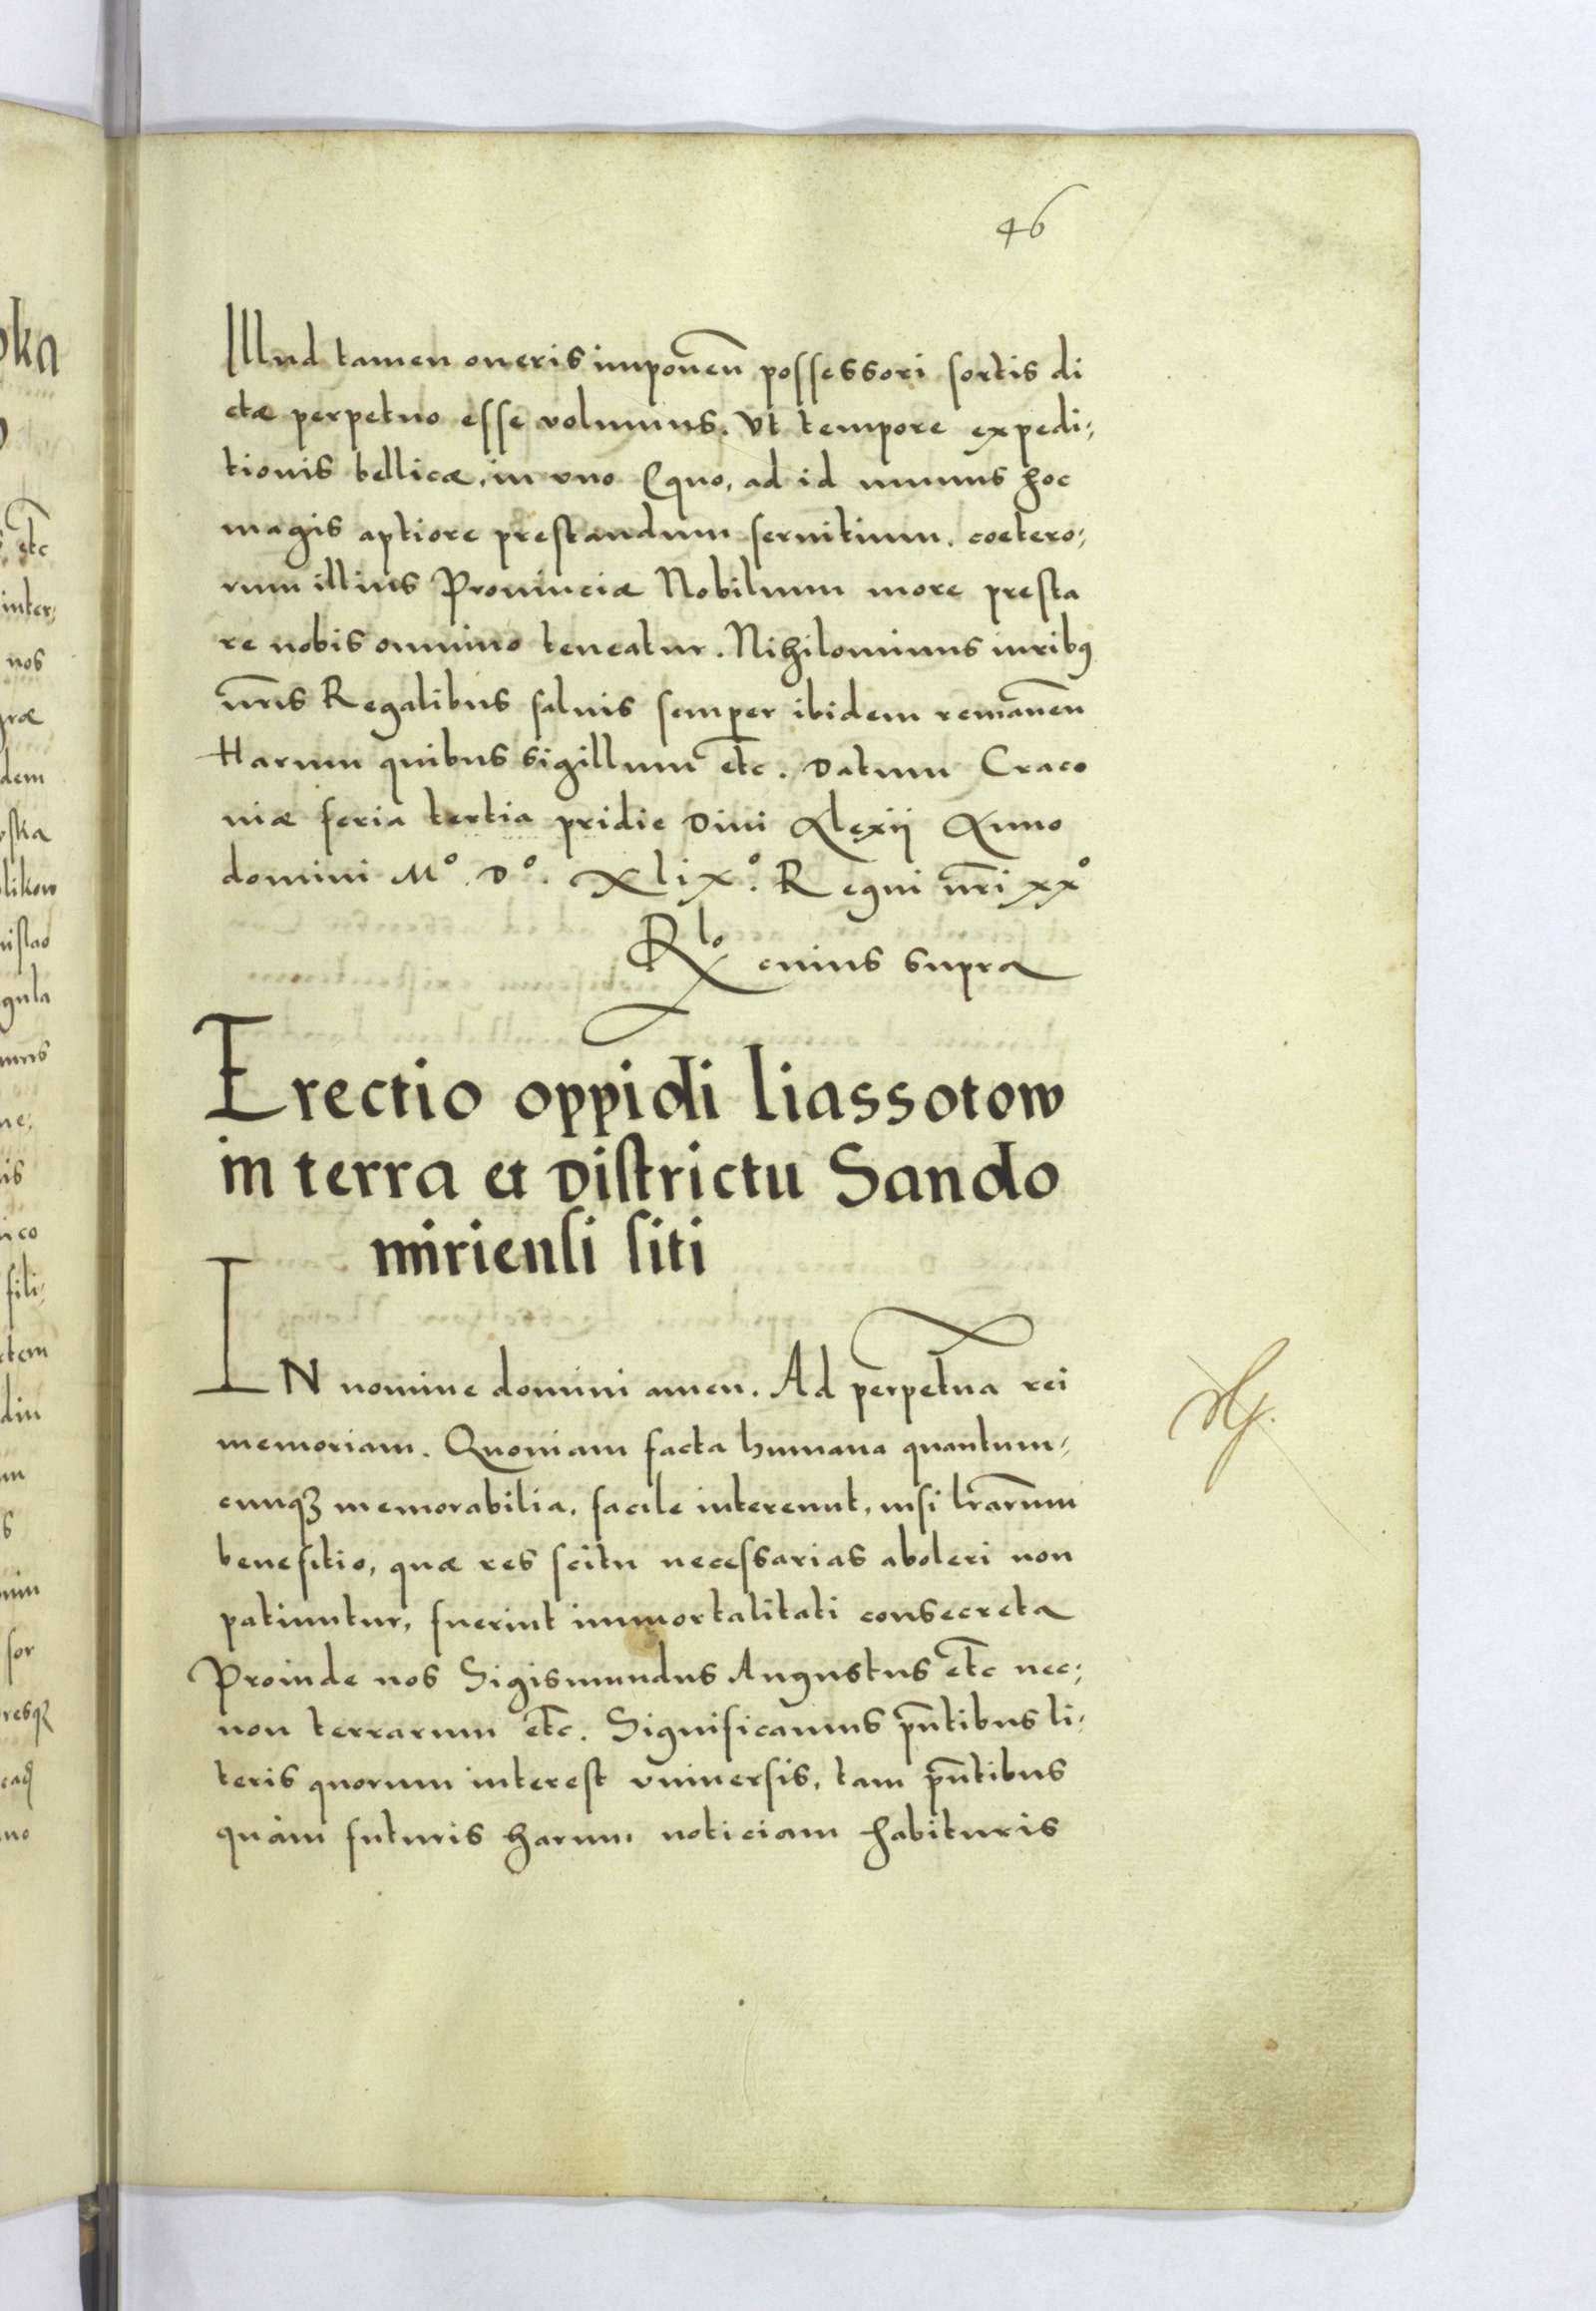 46
Illud tamen oneris imponen̄ possessori sortis di
ctæ perpetuo esse volumus. Vt tempore expedi⸗
tionis bellicæ, in vno Equo, ad id munus hoc
magis aptiore prestandum seruitium. coetero⸗
rum illius Prouinciæ Nobilium more presta
re nobis omnino teneatur. Nihilominus iuribꝫ
nr̄is Regalibus saluis semper ibidem remanen̄
Harum quibus sigillum etc̄. Datum Craco
uiæ feria tertia pridie Diui Alexij Anno
domini Mº. Dº. Xlixº. Regni nr̄i xxº
Rlo cuius supra
Erectio oppidi liassotow
in terra et Districtu Sando
miriensi siti
IN nomine domini amen. Ad perpetua rei
memoriam. Quoniam facta humana quantum⸗
cunqꝫ memorabilia, facile intereunt, nisi lr̄arum
benefitio, quæ res scitu necessarias aboleri non
patiuntur, fuerint immortalitati consecreta
Proinde nos Sigismundus Augustus etc̄ nec⸗
non terrarum etc̄. Significamus pn̄tibus li⸗
teris quorum interest vniuersis, tam pn̄tibus
quàm futuris harum noticiam habituris